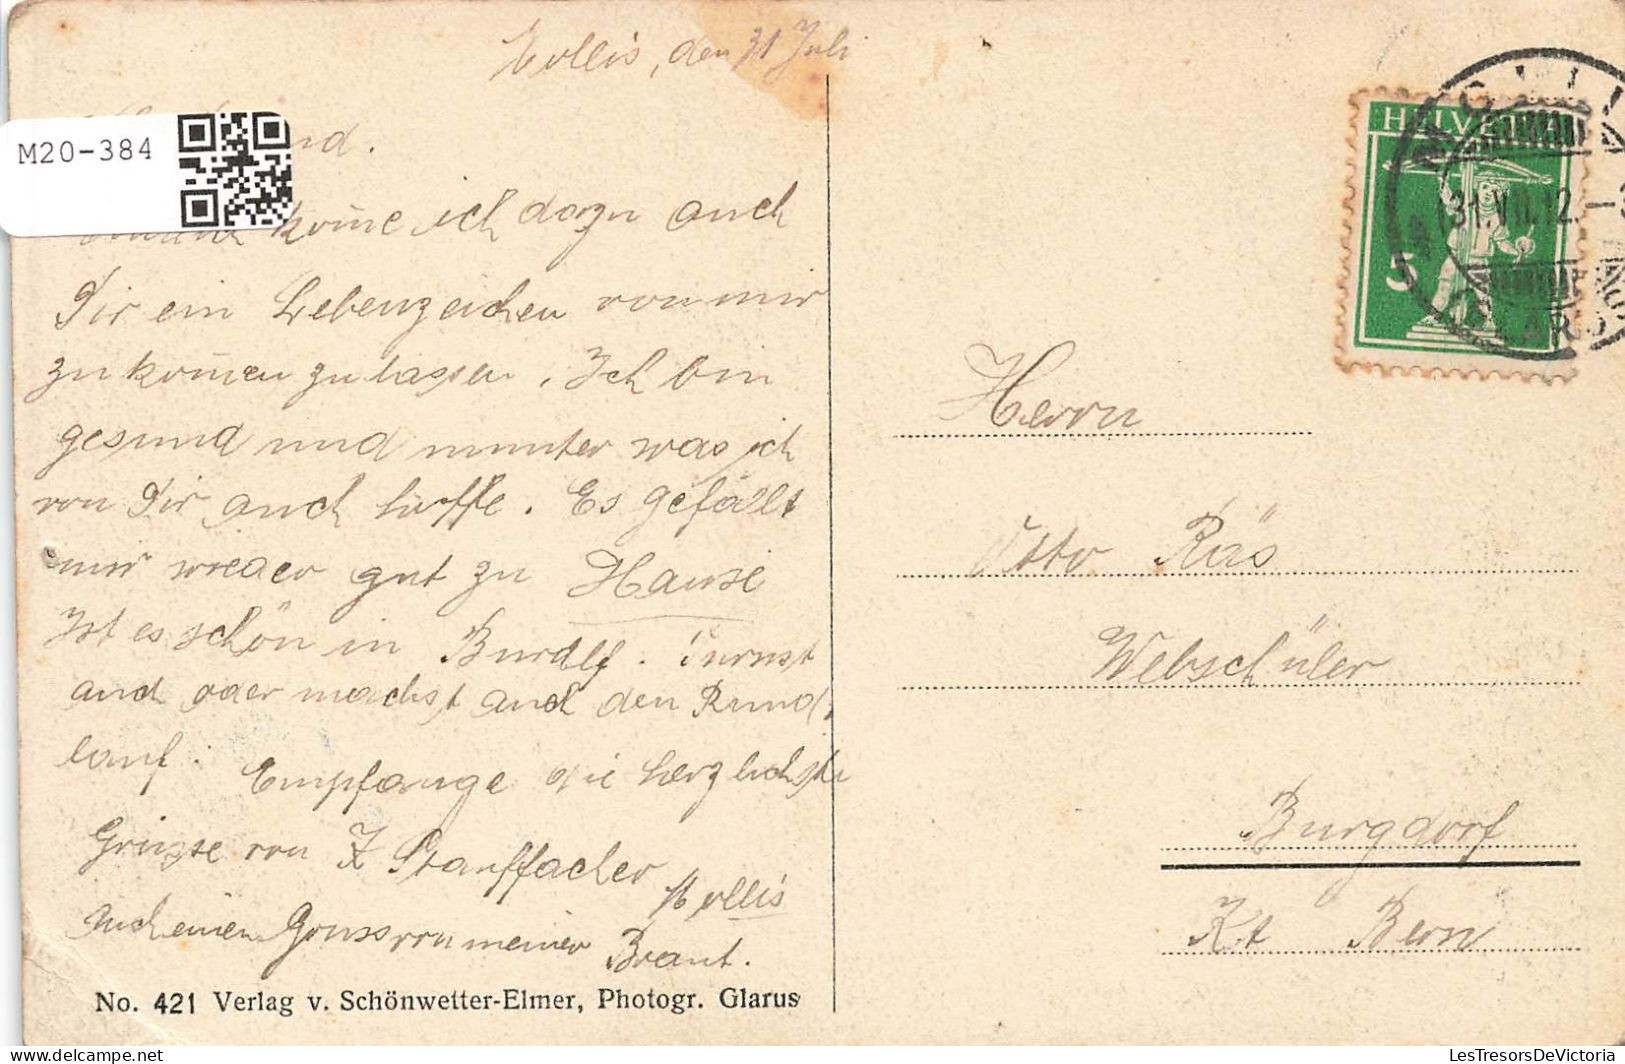 Mollis, den 31 Juli
M20-384
nd.
kom̅e ich dazu auch
Dir ein Lebenzeichen von mir
zu kom̅en zu lassen. Ich bin
gesund und munter was ich
von Dir auch hoffe. Es gefällt
mir wieder gut zu Hause
Ist es schön in Burdlf. Turnst
auch oder machst auch den Rund,
lauf. Empfange die herzlichste
Grüsse von Z Stauffacher
Mollis
Auch einen Gruss von meiner Braut.
No. 421 Verlag v. Schönwetter-Elmer, Photogr. Glarus
HELVETIA
5
MOLLIS
31.VII.12.
GLARUS
Herrn
Otto Räs
Webschüler
Burgdorf
Kt Bern
LesTresorsDeVictoria
delcampe.net